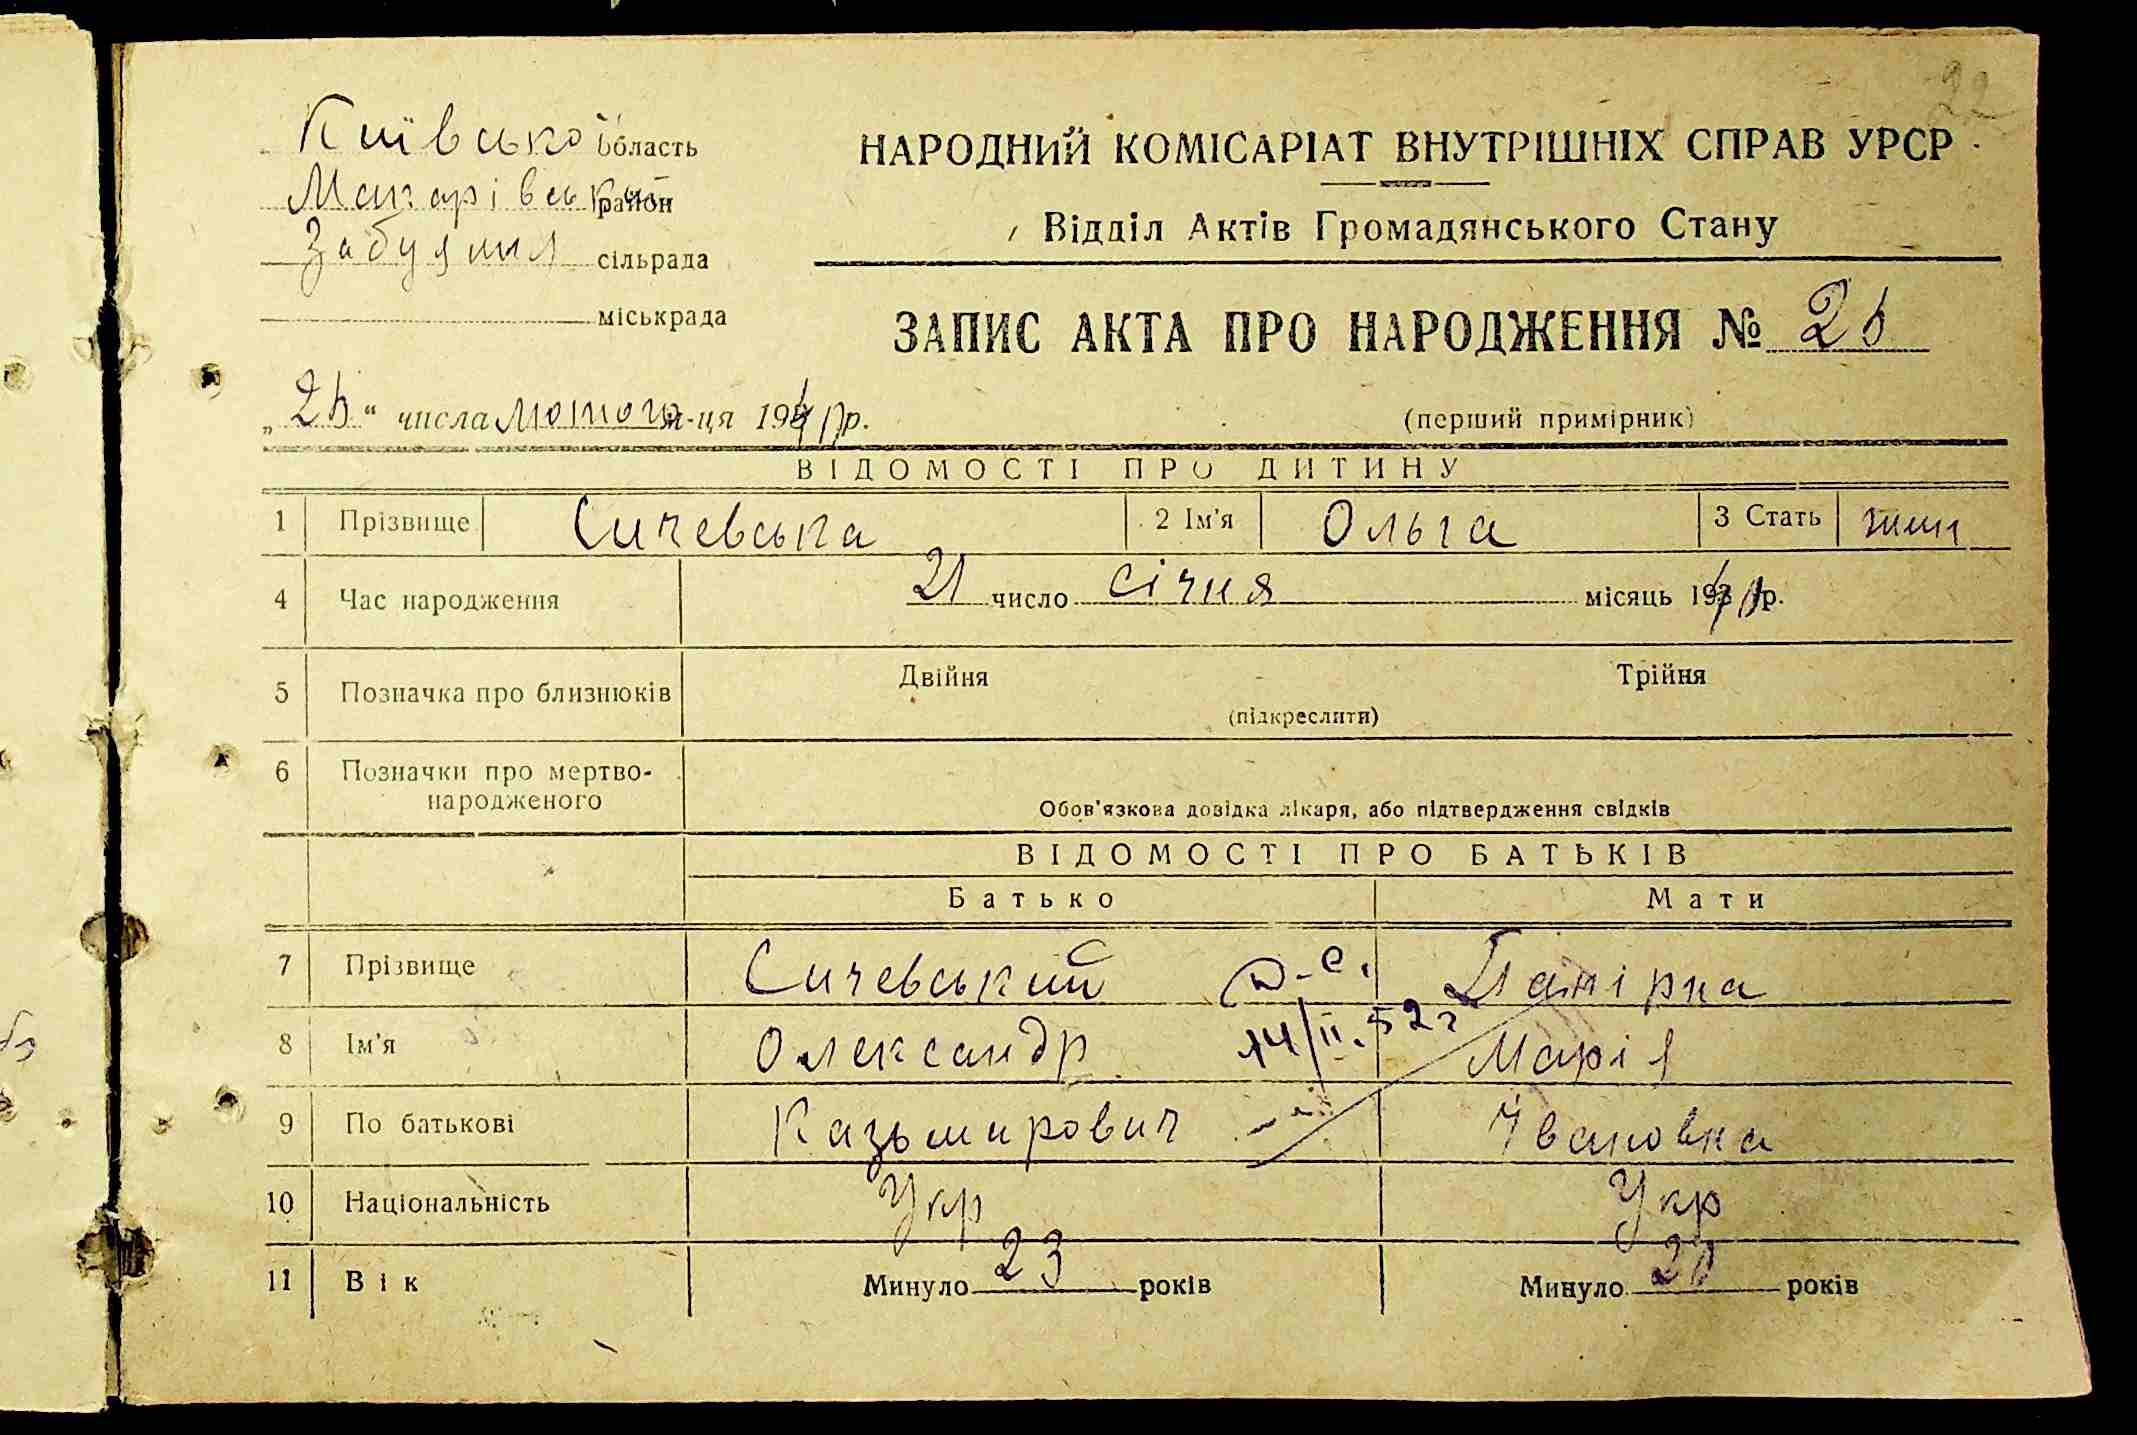 22
Київської область
Макарівський район
Забуяння сільрада
міськрада
НАРОДНИЙ КОМІСАРІАТ ВНУТРІШНІХ СПРАВ УРСР
Відділ Актів Громадянського Стану
ЗАПИС АКТА ПРО НАРОДЖЕННЯ №
„ “ числа Лютого м-ця 194 р.
(перший примірник)
ВІДОМОСТІ ПРО ДИТИНУ
1 Прізвище Сичевська 2 Ім'я Ольга 3 Стать жин
4 Час народження 21 число січня місяць 194 р.
5 Позначка про близнюків Двійня Трійня
(підкреслити)
6 Позначки про мертво-
народженого
Обов'язкова довідка лікаря, або підтвердження свідків
ВІДОМОСТІ ПРО БАТЬКІВ
Батько Мати
7 Прізвище Сичевський
8 Ім'я Олександр 14/II.52г Марія
9 По батькові Казьмирович Івановна
10 Національність Укр Укр
11 Вік Минуло 23 років Минуло років